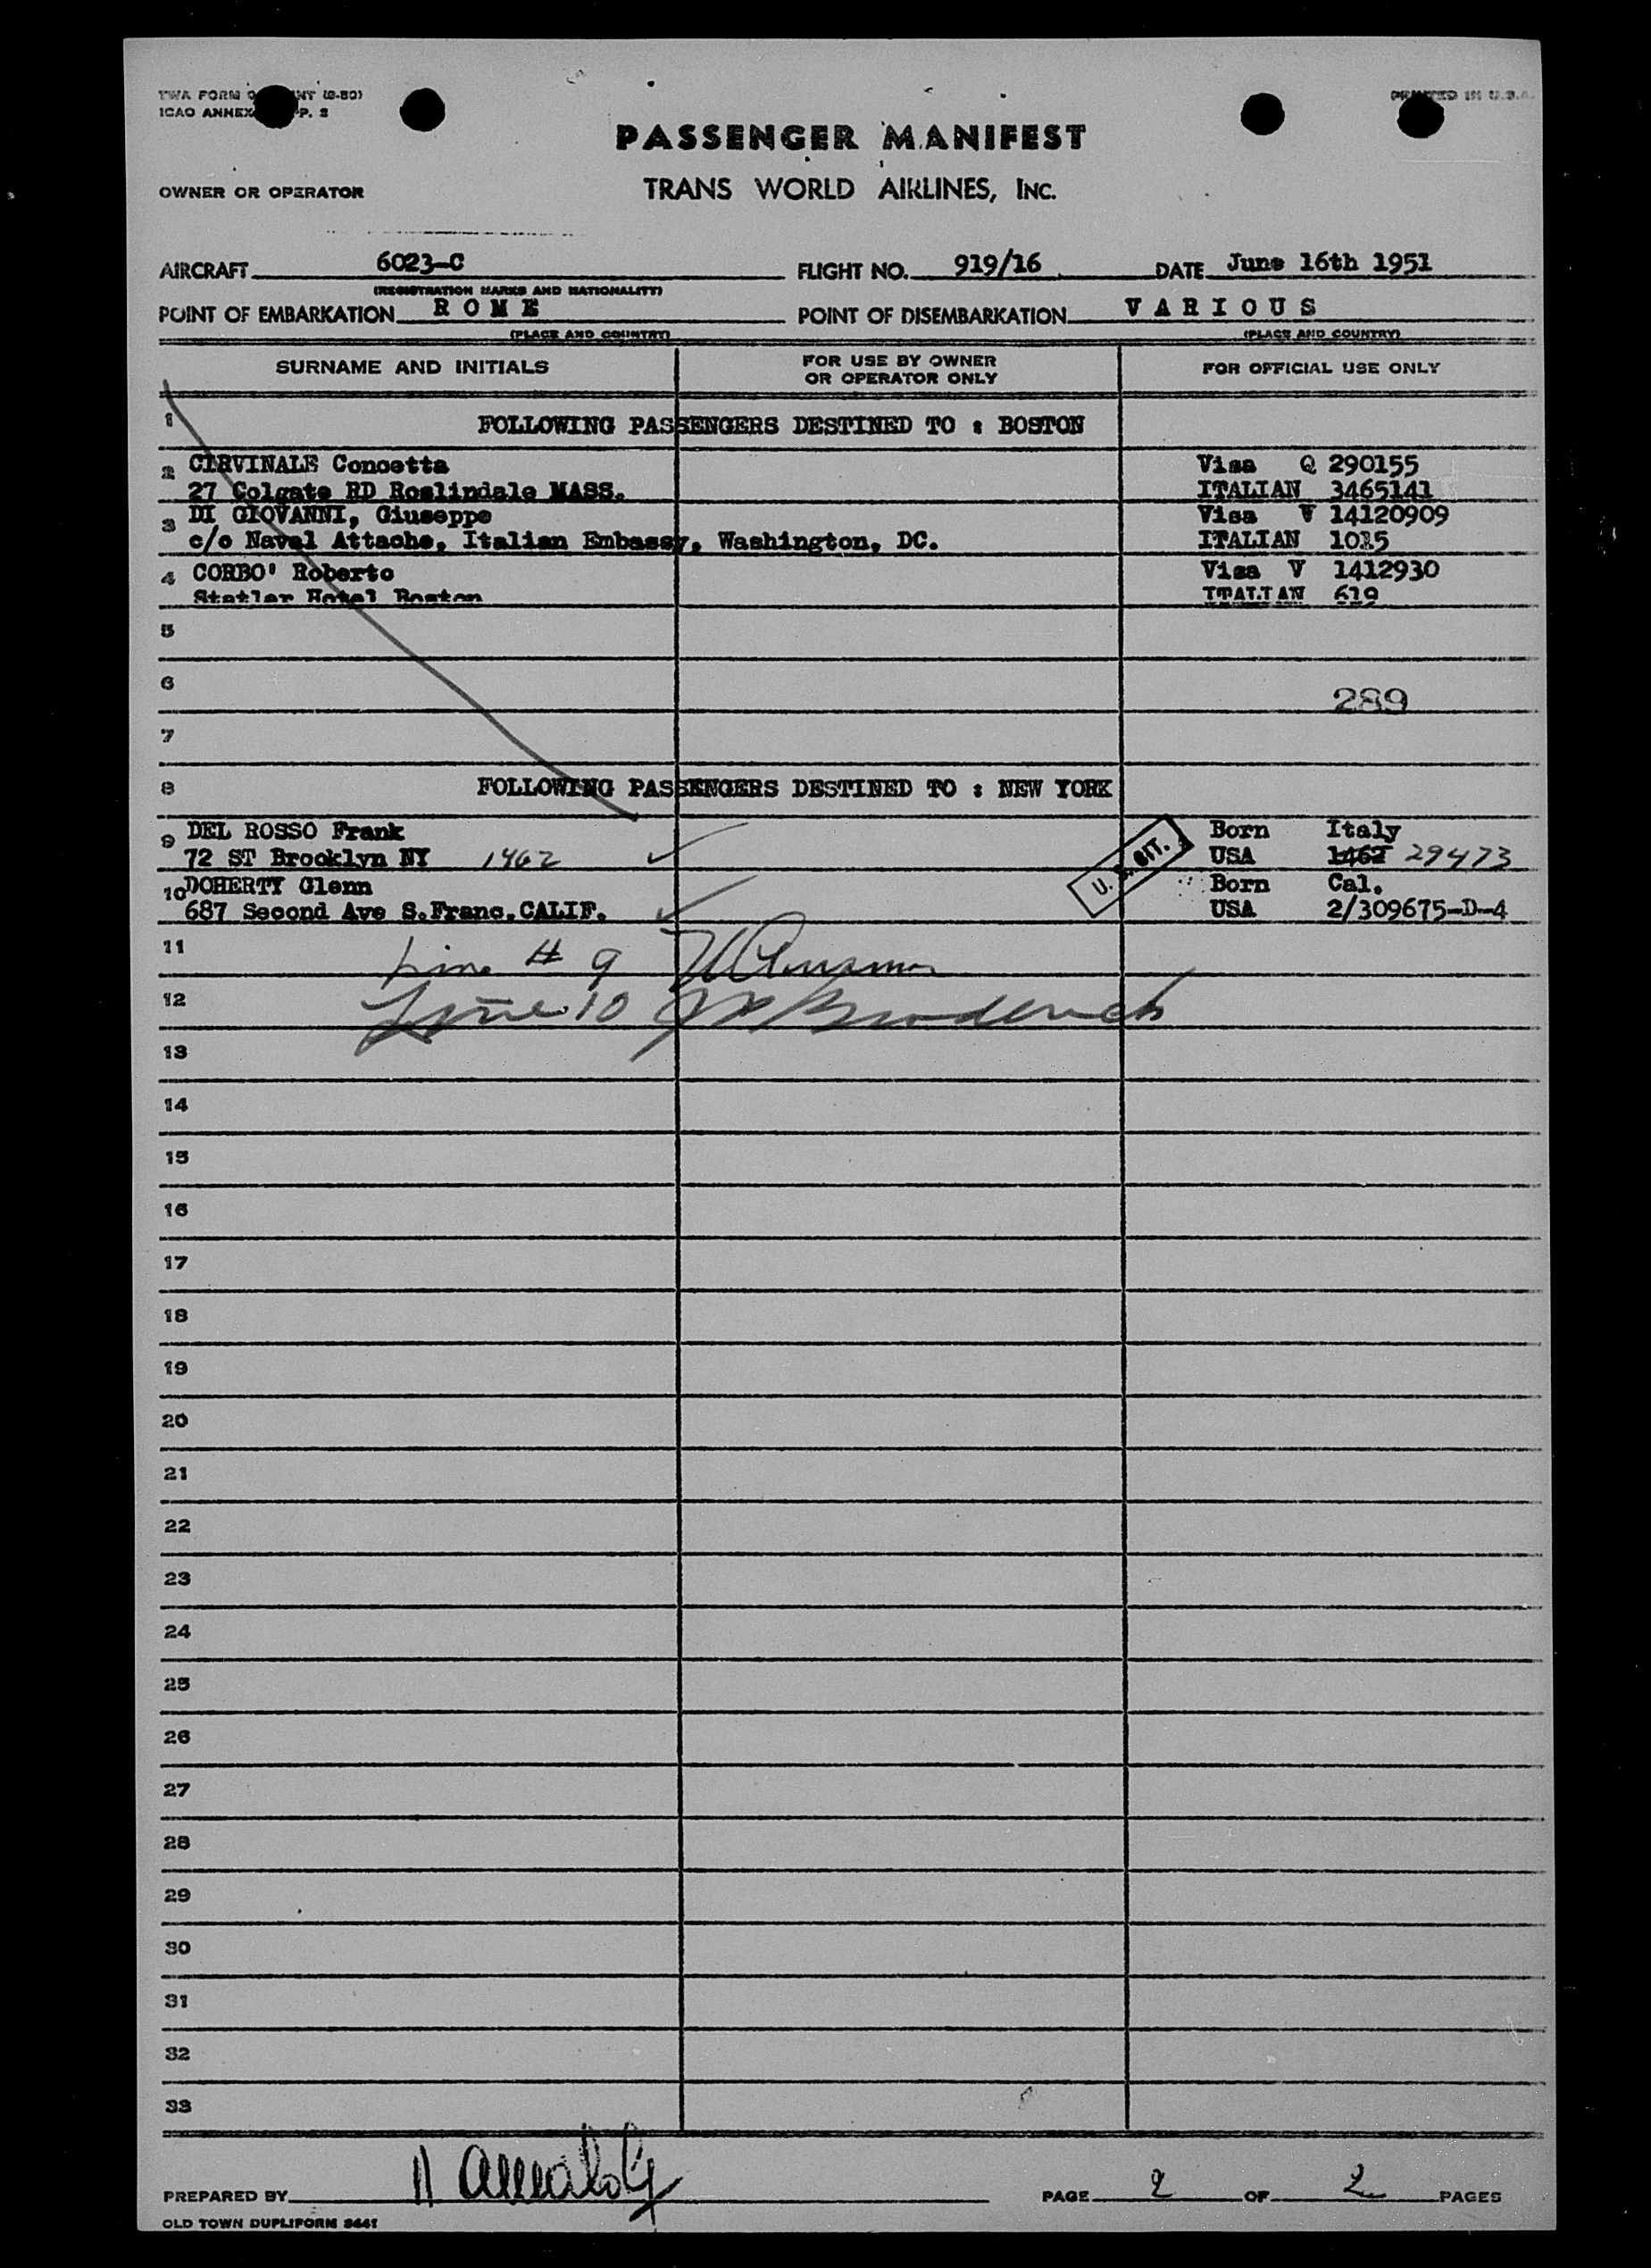 PRINTED IN U.S.A.
PASSENGER MANIFEST
OWNER OR OPERATOR TRANS WORLD AIRLINES, INC.
AIRCRAFT 6023-C FLIGHT NO. 919/16 DATE June 16th 1951
(REGISTRATION MARKS AND NATIONALITY)
POINT OF EMBARKATION R O M E POINT OF DISEMBARKATION V A R I O U S
(PLACE AND COUNTRY) (PLACE AND COUNTRY)
SURNAME AND INITIALS FOR USE BY OWNER OR OPERATOR ONLY FOR OFFICIAL USE ONLY
1 FOLLOWING PASSENGERS DESTINED TO : BOSTON
2 CIRVINALE Concetta Visa Q 290155
27 Colgate RD Roslindale MASS. ITALIAN 3465141
3 DI GIOVANNI, Giuseppe Visa V 14120909
c/o Naval Attache, Italian Embassy, Washington, DC. ITALIAN 1015
4 CORBO' Roberto Visa V 1412930
Statler Hotel Boston ITALIAN 619
5
6 289
7
8 FOLLOWING PASSENGERS DESTINED TO : NEW YORK
9 DEL ROSSO Frank Born Italy
72 ST Brooklyn NY 1462 USA 1462 29473
U. S. CIT.
10 DOHERTY Glenn Born Cal.
687 Second Ave S.Franc.CALIF. USA 2/309675-D-4
11 Line # 9
12 Line 10 Broderick
13
14
15
16
17
18
19
20
21
22
23
24
25
26
27
28
29
30
31
32
33
PREPARED BY PAGE 2 OF 2 PAGES
OLD TOWN DUPLIFORM 8441